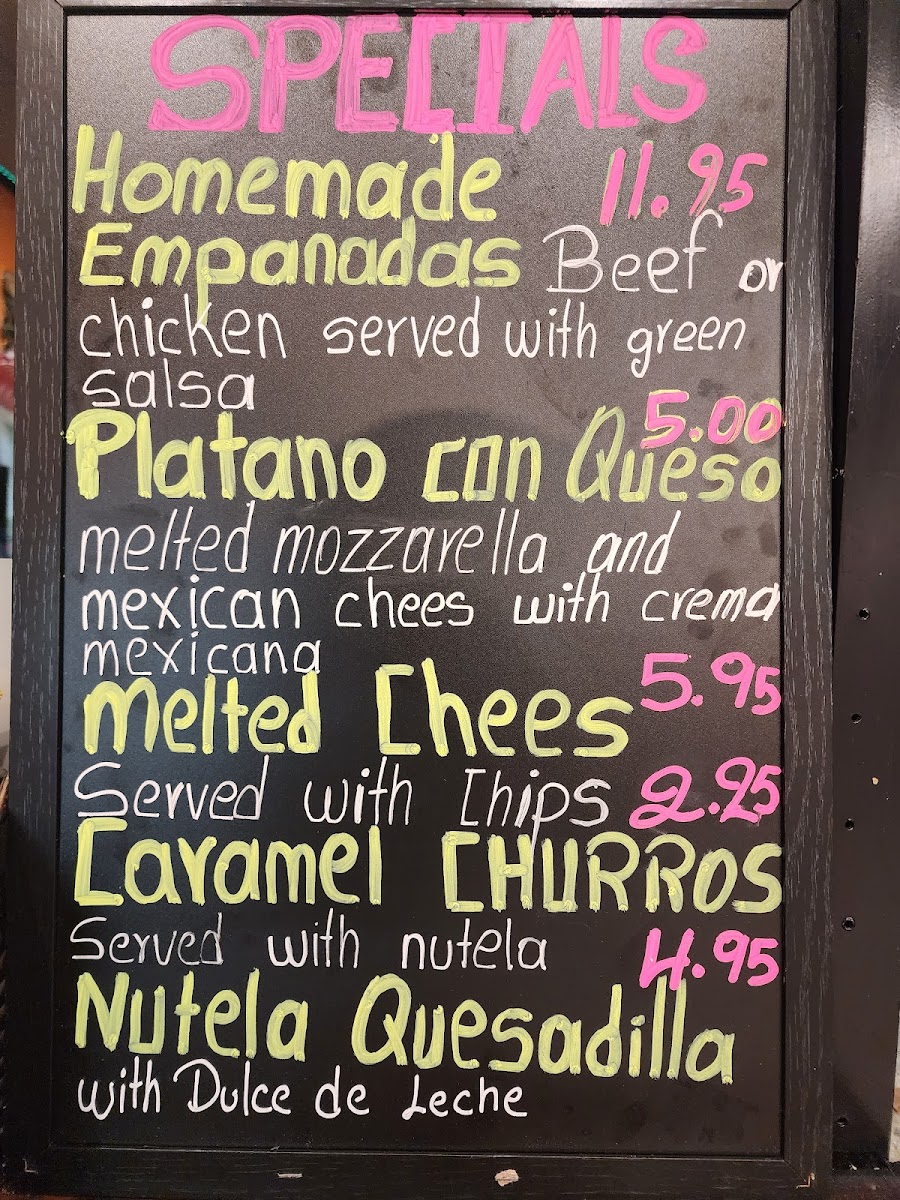 SPECIALS
Homemade 11.95
Empanadas Beef or
chicken served with green
salsa
5.00
Platano con Queso
melted mozzarella and
mexican chees with crema
mexicana
5.95
Melted Chees
Served with Chips 2.25
Caramel CHURROS
Served with nutela
4.95
Nutela Quesadilla
with Dulce de Leche